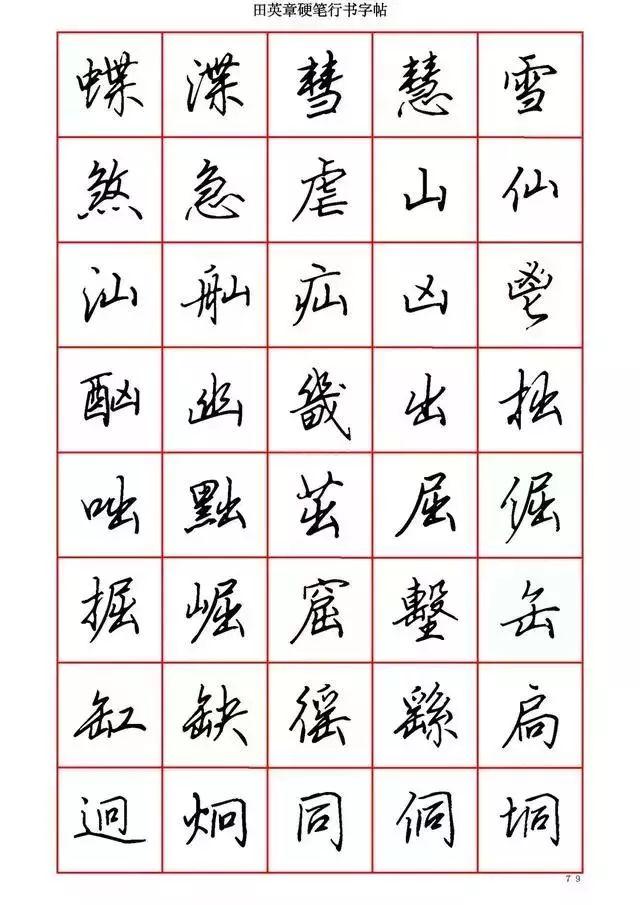 田英章硬笔行书字帖
蝶 渫 彗 慧 雪
煞 急 虐 山 仙
汕 舢 疝 凶 鬯
酗 幽 畿 出 拙
咄 黜 茁 屈 倔
掘 崛 窟 擊 缶
缸 缺 徭 繇 扃
迥 炯 同 侗 垌
79